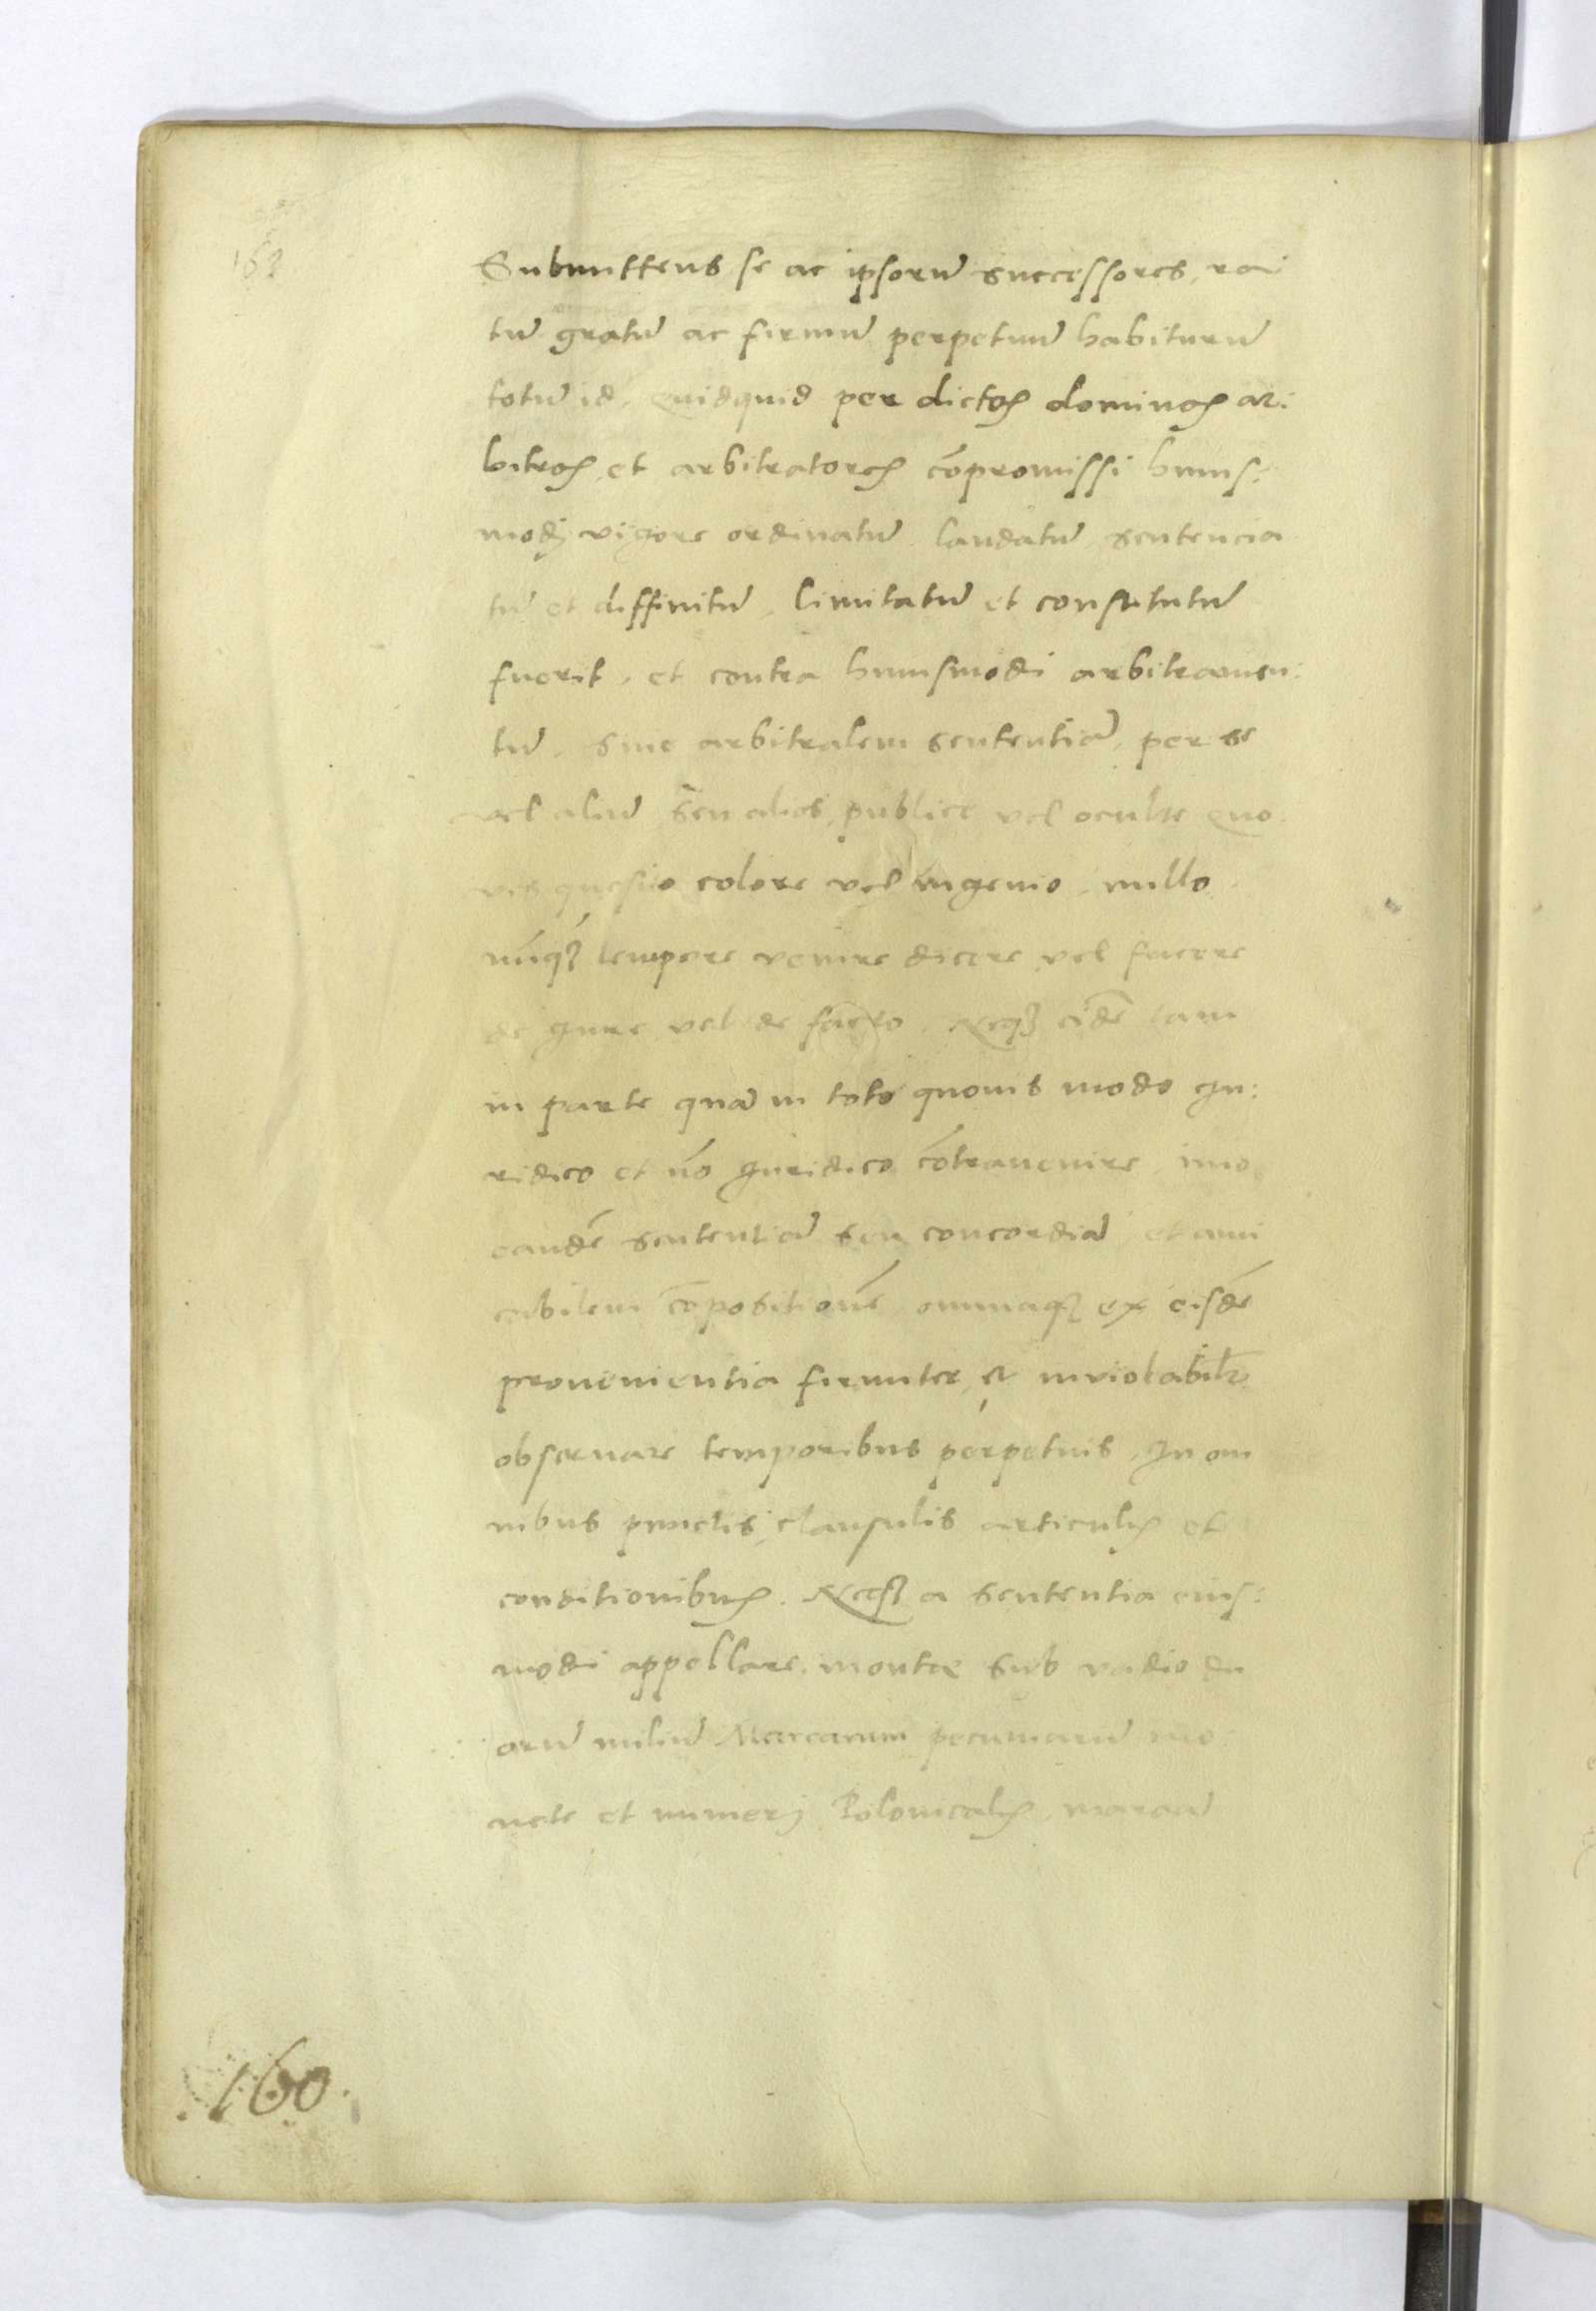 162
Submittens se ac ipsorū successores, ra
tū gratū ac firmū perpetuū habiturū
totū id, quidquid per dictos dominos ar:
bitros, et arbitratores cōpromissi huius:
modj vigore ordinatū laudatū sentencia
tū et diffinitū, limitatū et constitutū
fuerit, et contra huiusmodi arbitramen:
tū, siue arbitralem sententiā, per se
vel aliū, seu alios, publice vel oculte quo
vis quesito colore vel ingenio, nullo
vnq̄ꝫ tempore venire dicere vel facere
de jure vel de facto, Neqꝫ eidē tam
in parte quā in toto quouis modo Ju:
ridico et nō Juridico cōtrauenire, imo
eandē sententiā seu concordiā et ami
cabilem cōpositionē, omniaqꝫ ex eisdē
prouenientia firmiter, et inviolabilr̄
obseruare temporibus perpetuis, In om
nibus punctis, clausulis articulis et
conditionibus. Neqꝫ a sententia eius:
modi appellare, monte sub vadio du
orū miliū Marcarum pecuniarū mo
nete et numerj Polonicalis, marcā
.160.